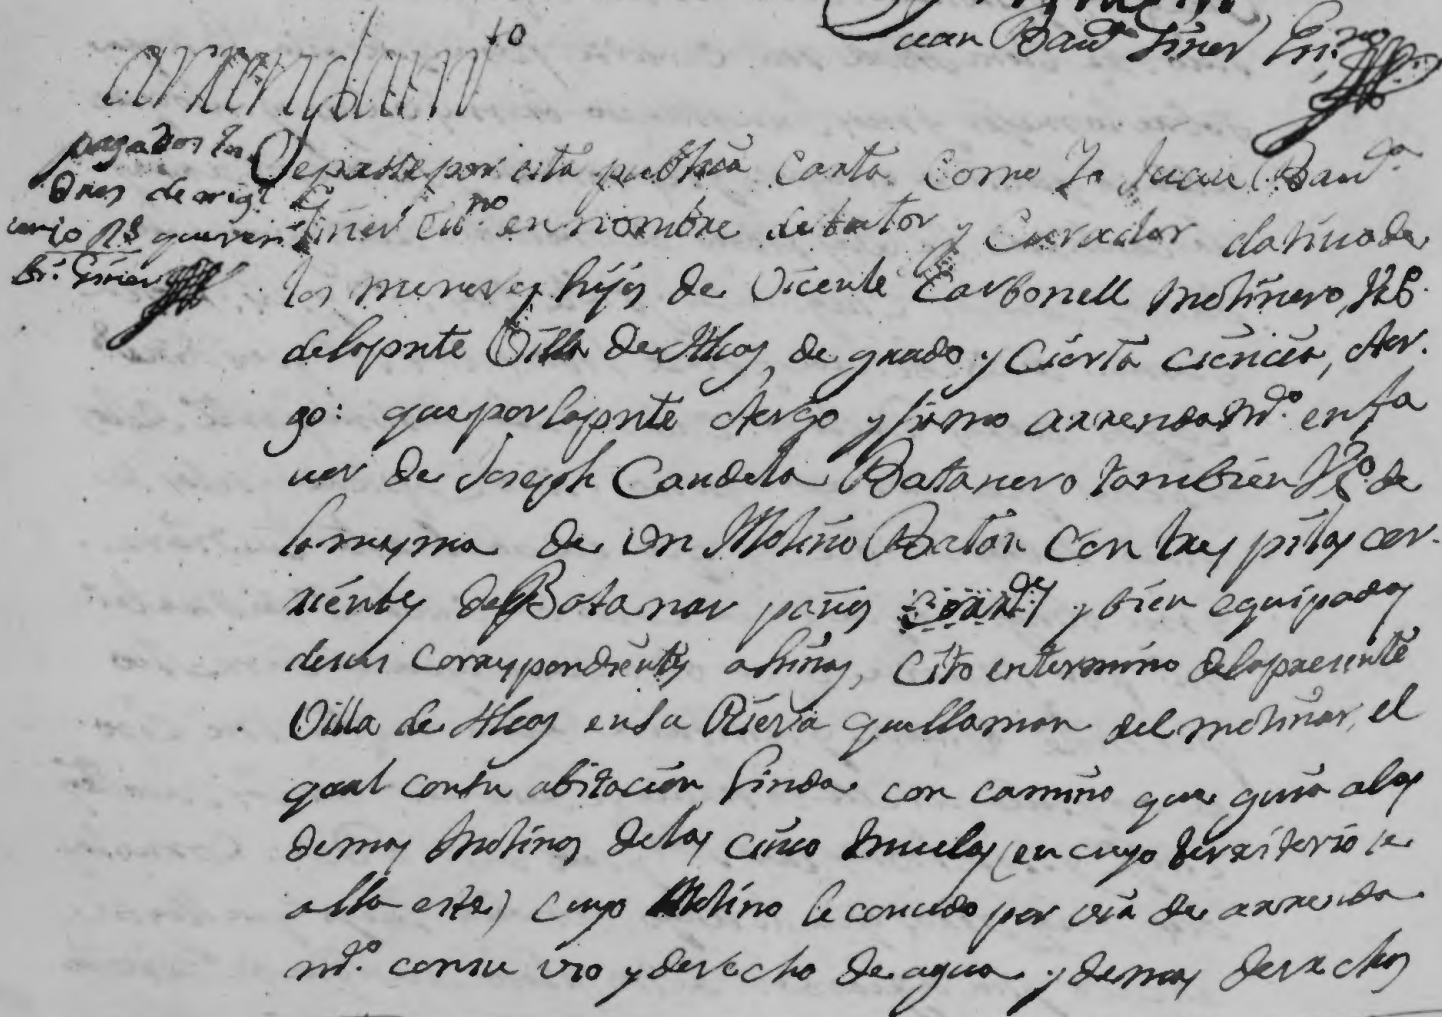 Juan Baut.ª Giner Es.no
arrendam.to
pagados los
dros de orig.l
Sepasse por esta publica Carta Como Yo Juan Baut.ª
Giner Es.no en nombre de tutor y Curador dativo de
los menores hijos de Vicente Carbonell Molinero, Vº
delapnte Villa de Alcoy, de grado y Cierta ciencia, otor-
go: que por lapnte otorgo y firmo arrendam.to en fa
vor de Joseph Candela Batanero tambien Vº de
la mesma de un Molino Batan con tres pilas cor-
rientes de Batanar paños y bien equipados
de sus correspondientes ahinas, Cito entermino delapresente
Villa de Alcoy en la Riera que llaman del molinar, el
qual con su abitacion linda con camino que guia alos
demas Molinos delas cinco muelas (en cuyo territorio se
alla este) cuyo Molino le concedo por via de arrenda
m.to con su uso y derecho de agua y demas derechos